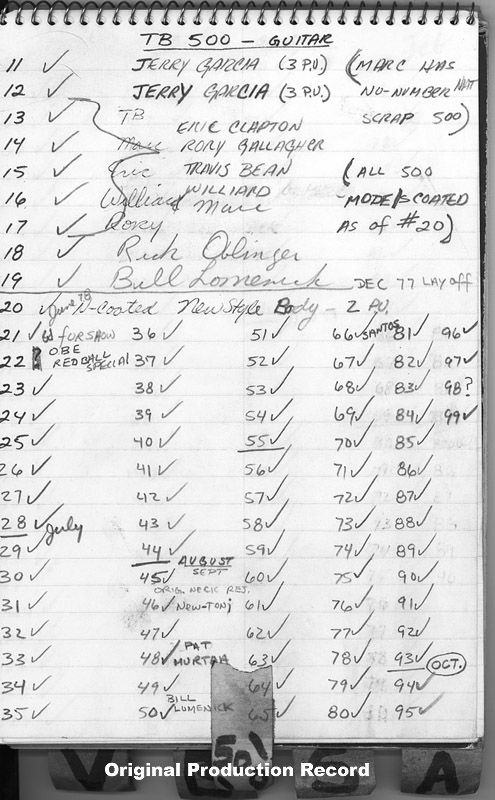 TB 500 - GUITAR
11 ✓ JERRY GARCIA (3 P.U.) (MARC HAS
12 ✓ JERRY GARCIA (3 P.U.) NO-NUMBER
13 ✓ TB SCRAP 500)
ERIC CLAPTON
14 ✓ Marc RORY GALLAGHER
15 ✓ Eric TRAVIS BEAN (ALL 500
WILLIARD
16 ✓ Williard Marc MODELS COATED
17 ✓ Rory AS OF #20)
18 ✓ Rick Oblinger
19 ✓ Bill Lomenick DEC 77 LAY OFF
20 ✓ June 78 N-coated New Style Body - 2 P.U.
21 ✓ for SHOW 36 ✓ 51 ✓ 66 ✓ SANTOS 81 ✓ 96 ✓
22 OBE RED BALL SPECIAL 37 ✓ 52 ✓ 67 ✓ 82 ✓ 97 ✓
23 ✓ 38 ✓ 53 ✓ 68 ✓ 83 ✓ 98?
24 ✓ 39 ✓ 54 ✓ 69 ✓ 84 ✓ 99 ✓
25 ✓ 40 ✓ 55 ✓ 70 ✓ 85 ✓
26 ✓ 41 ✓ 56 ✓ 71 ✓ 86 ✓
27 ✓ 42 ✓ 57 ✓ 72 ✓ 87 ✓
28 ✓ July 43 ✓ 58 ✓ 73 ✓ 88 ✓
29 ✓ 44 ✓ 59 ✓ 74 ✓ 89 ✓
AUGUST
30 ✓ 45 ✓ SEPT 60 ✓ 75 ✓ 90 ✓
ORIG. NECK REJ.
31 ✓ 46 ✓ New-Tonj 61 ✓ 76 ✓ 91 ✓
32 ✓ 47 ✓ 62 ✓ 77 ✓ 92 ✓
33 ✓ 48 ✓ PAT MURTHA 63 ✓ 78 ✓ 93 ✓ OCT.
34 ✓ 49 ✓ 64 ✓ 79 ✓ 94 ✓
35 ✓ 50 ✓ BILL LUMENICK 65 ✓ 80 ✓ 95 ✓
V S A
Original Production Record